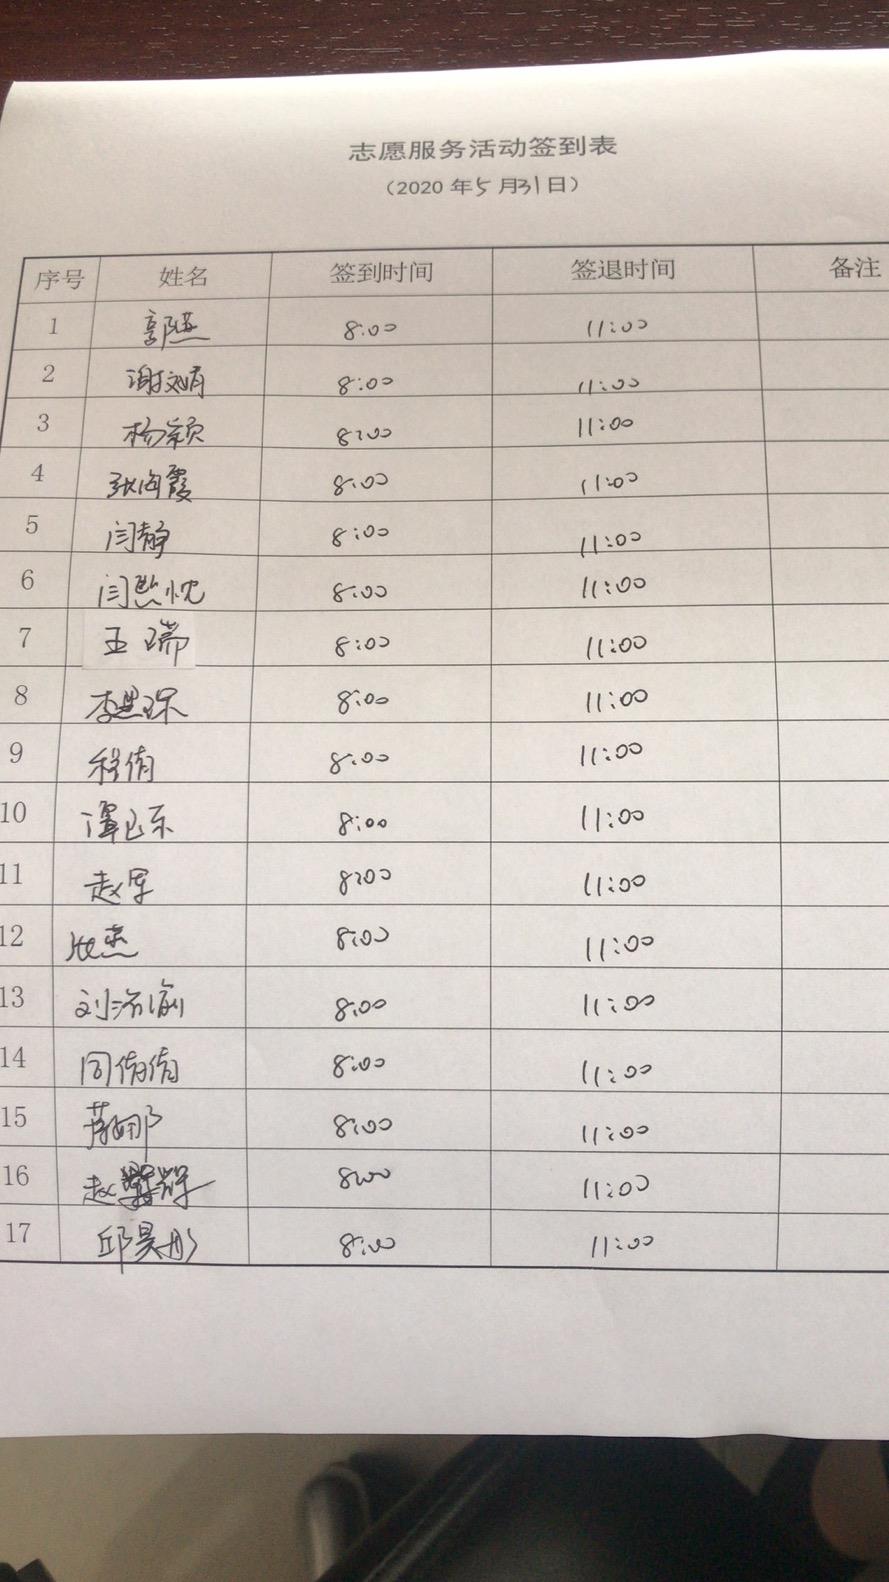 志愿服务活动签到表
（2020年5月31日）
序号 姓名 签到时间 签退时间 备注
1 郭燕 8:00 11:00
2 谢文娟 8:00 11:00
3 杨颖 8:00 11:00
4 张海霞 8:00 11:00
5 闫静 8:00 11:00
6 闫 8:00 11:00
7 王瑞 8:00 11:00
8 李 8:00 11:00
9 程倩 8:00 11:00
10 8:00 11:00
11 赵军 8:00 11:00
12 8:00 11:00
13 刘 8:00 11:00
14 同倩倩 8:00 11:00
15 8:00 11:00
16 赵 8:00 11:00
17 邱昊彤 8:00 11:00